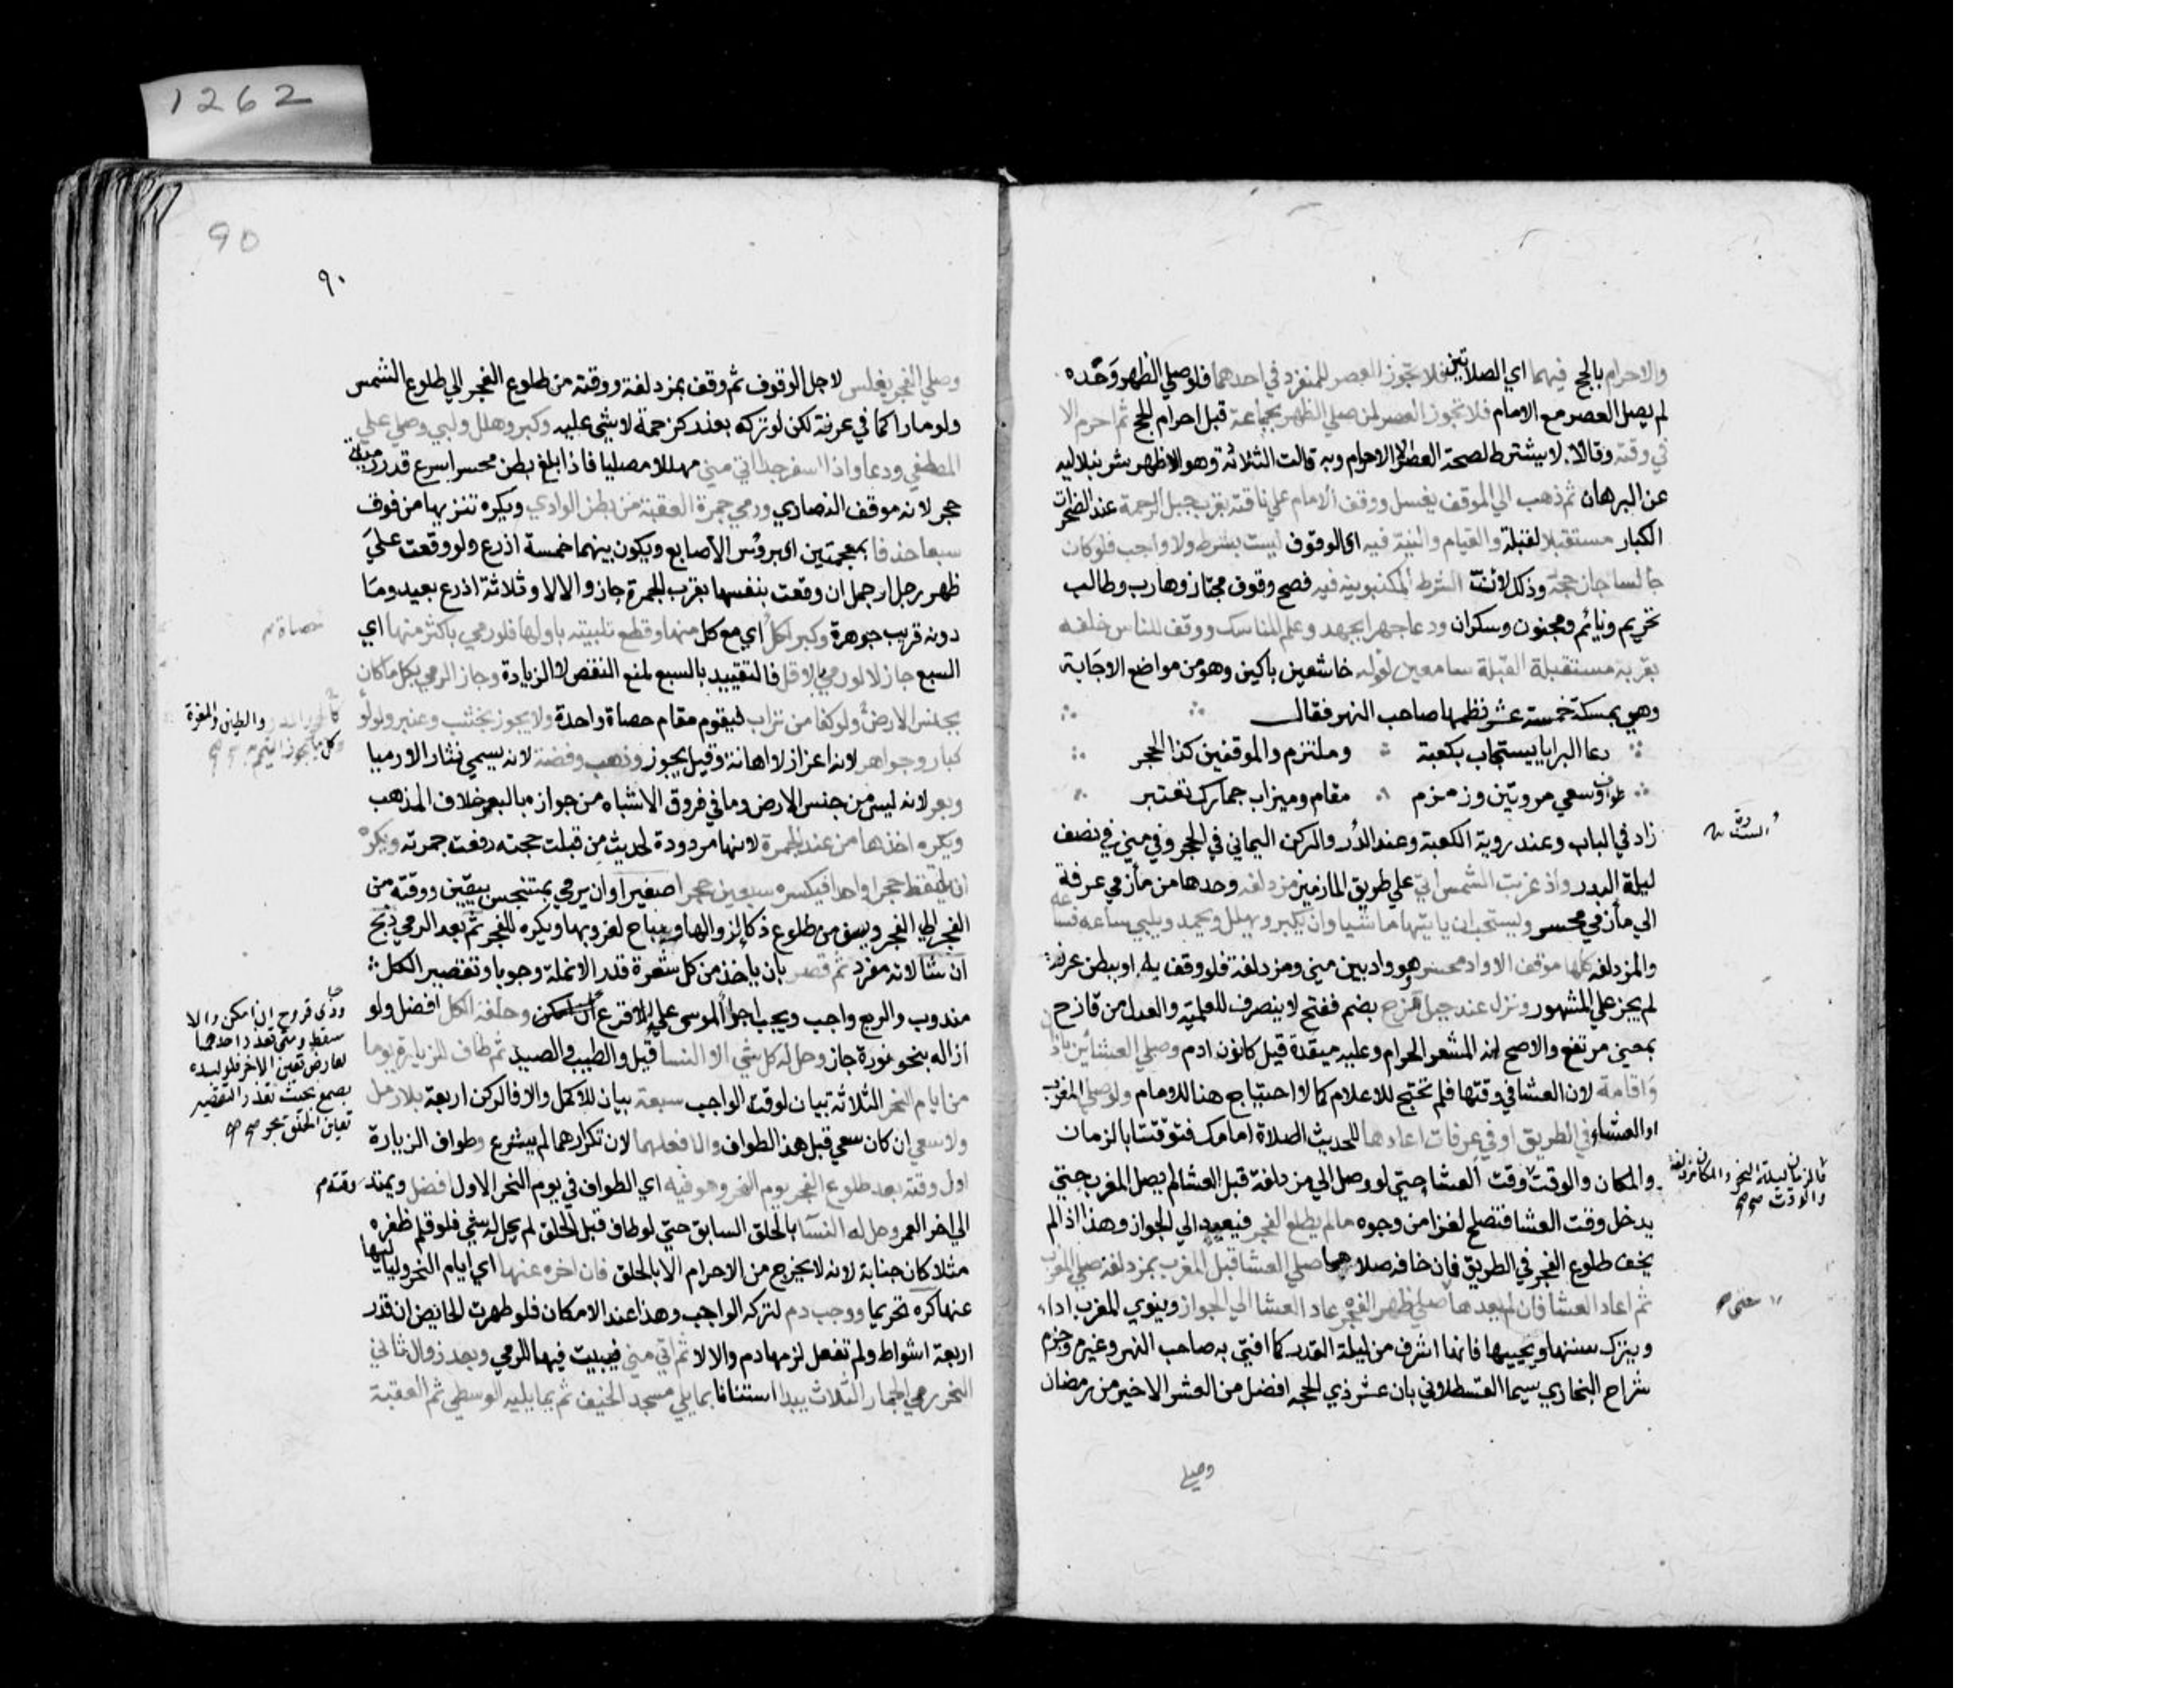 1262
والاحرام بالحج فيهما اي الصلاتين فلا تجوز العصر للمنفرد في احدهما فلو صلي الظهر وحده
لم يصل العصر مع الامام فلا تجوز العصر لمن صلي الظهر بجماعة قبل احرام الحج ثم احرم الا
في وقته وقالا لا يشترط لصحة العصر الا الاحرام وبه قالت الثلاثة وهو الاظهر شرنبلاليه
عن البرهان ثم ذهب الي الموقف بغسل ووقف الامام علي ناقته بقرب جبل الرحمة عند الصخرات
الكبار مستقبلا لقبلة والقيام والنية فيه اي الوقوف ليست بشرط ولا واجب فلو كان
جالسا جاز حجه وذلك لان الشرط الكينونة فيه فصح وقوف مجتاز وهارب وطالب
غريم ونائم ومجنون وسكران ودعا جهرا بجهد وعلم المناسك ووقف الناس خلفه
بقربه مستقبلة القبلة سامعين لقوله خاشعين باكين وهو من مواضع الاجابة
وهي بمكة خمسة عشر نظمها صاحب النهر فقال
دعا البرايا يستجاب بكعبة وملتزم والموقفين كذا الحجر
طواف وسعي مروتين وزمزم مقام وميزاب جمارك تعتبر
زاد في اللباب وعند روية الكعبة وعند السدرة والركن اليماني في الحجر وفي مني في نصف
ليلة البدر واذ غربت الشمس اتي علي طريق المازمين مزدلفه وحدها من مأزمي عرفة
الي مأزمي محسر ويستحب ان ياتيها ماشيا وان يكبر ويهلل ويحمد ويلبي ساعه فساعه
والمزدلفه كلها موقف الا واد محسر هو واد بين مني ومزدلفة فلو وقف به او ببطن عرنة
لم يجز علي المشهور ونزل عند جبل قزح بضم ففتح لا ينصرف للعلمية والعدل من قازح
بمعني مرتفع والاصح انه المشعر الحرام وعليه ميقدة قيل كانون ادم وصلي العشائين باذان
واقامة لان العشا في وقتها فلم تحتج للاعلام كما لا احتياج هنا للامام ولو صلي المغرب
او العشاء في الطريق او في عرفات اعادها للحديث الصلاة امامك فتوقتتا بالزمان
والمكان والوقت وقت العشا حتي لو وصل الي مزدلفة قبل العشا لم يصل المغرب حتي
يدخل وقت العشا فتصلح لغزا من وجوه ما لم يطلع الفجر فيعود الي الجواز وهذا اذا لم
يخف طلوع الفجر في الطريق فان خافه صلاهما صلي العشا قبل المغرب بمزدلفة صلي المغرب
ثم اعاد العشا فان لم يعدها صلي ظهر الفجر عاد العشا الي الجواز وينوي المغرب اداء
ويترك سنتها ويحييها فانها اشرف من ليلة القدر كما افتي به صاحب النهر وغيره وجزم
شراح البخاري سيما القسطلاني بان عشر ذي الحجه افضل من العشر الاخير من رمضان
وصلي
السدرة
فالزمان ليلة النحر والمكان مزدلفة
والوقت صح
حتي
90
٩٠
وصلي الفجر بغلس لاجل الوقوف ثم وقف بمزدلفة ووقته من طلوع الفجر الي طلوع الشمس
ولو مارا كما في عرفة لكن لو تركه بعذر كزحمة لا شي عليه وكبر وهلل ولبي وصلي علي
المصطفي ودعا واذا اسفر جدا اتي مني مهللا مصليا فاذا بلغ بطن محسر اسرع قدر رمية
حجر لانه موقف النصاري ورمي جمرة العقبة من بطن الوادي ويكره تنزيها من فوق
سبعا خذفا بمعجمتين اي بروس الاصابع ويكون بينهما خمسة اذرع ولو وقعت علي
ظهر رجل او جمل ان وقعت بنفسها بقرب الجمرة جاز والا لا وثلاثة اذرع بعيد وما
دونه قريب جوهرة وكبر لكل اي مع كل منها وقطع تلبيته باولها فلو رمي باكثر منها اي
السبع جاز لا لو رمي بالاقل فالتقييد بالسبع لمنع النقص لا الزيادة وجاز الرمي بكل ما كان
بجنس الارض ولو كفا من تراب فيقوم مقام حصاة واحدة ولا يجوز بخشب وعنبر ولولو
كبار وجواهر لانه اعزاز لا اهانة وقيل يجوز وذهب وفضة لانه يسمي نثار الا رميا
وبعر لانه ليس من جنس الارض وما في فروق الاشباه من جوازه بالبعر خلاف المذهب
ويكره اخذها من عند الجمرة لانها مردودة لحديث من قبلت حجته رفعت جمرته ويكره
ان يلتقط حجرا واحدا فيكسره سبعين حجرا صغيرا وان يرمي بمتنجس بيقين ووقته من
الفجر الي الفجر ويسن من طلوع ذكا لزوالها ويباح لغروبها ويكره للفجر ثم بعد الرمي ذبح
ان شا لانه مفرد ثم قصر بان ياخذ من كل شعرة قدر الانملة وجوبا وتقصير الكل
مندوب والربع واجب ويجب اجرا الموسي علي الاقرع ان امكن وحلقه الكل افضل ولو
ازاله بنحو نورة جاز وحل له كل شي الا النسا قيل والطيب والصيد ثم طاف للزيارة يوما
من ايام النحر الثلاثة بيان لوقت الواجب سبعة بيان للاكمل والا فالركن اربعة بلا رمل
ولا سعي ان كان سعي قبل هذا الطواف والا فعلهما لان تكرارهما لم يشرع وطواف الزيارة
اول وقته بعد طلوع الفجر يوم النحر وهو فيه اي الطواف في يوم النحر الاول افضل ويمتد وقته
الي اخر العمر وحل له النسا بالحلق السابق حتي لو طاف قبل الحلق لم يحل له شي فلو قلم ظفره
مثلا كان جناية لانه لا يخرج من الاحرام الا بالحلق فان اخره عنها اي ايام النحر ولياليها
عنها كره تحريما ووجب دم لتركه الواجب وهذا عند الامكان فلو طهرت الحائض ان قدر
اربعة اشواط ولم تفعل لزمها دم والا لا ثم اتي مني فيبيت فيها للرمي وبعد زوال ثاني
النحر رمي الجمار الثلاث يبدا استنانا بما يلي مسجد الخيف ثم بما يليه الوسطي ثم العقبة
حصاة
كالحجر والمدر والطين والمغرة
وكل ما يجوز التيمم به صح
وذي قروح ان امكن والا
سقط ومتي تعذر احدهما
لعارض تعين الاخر فلو لبده
بصمغ بحيث تعذر التقصير
تعين الحلق بحر صح